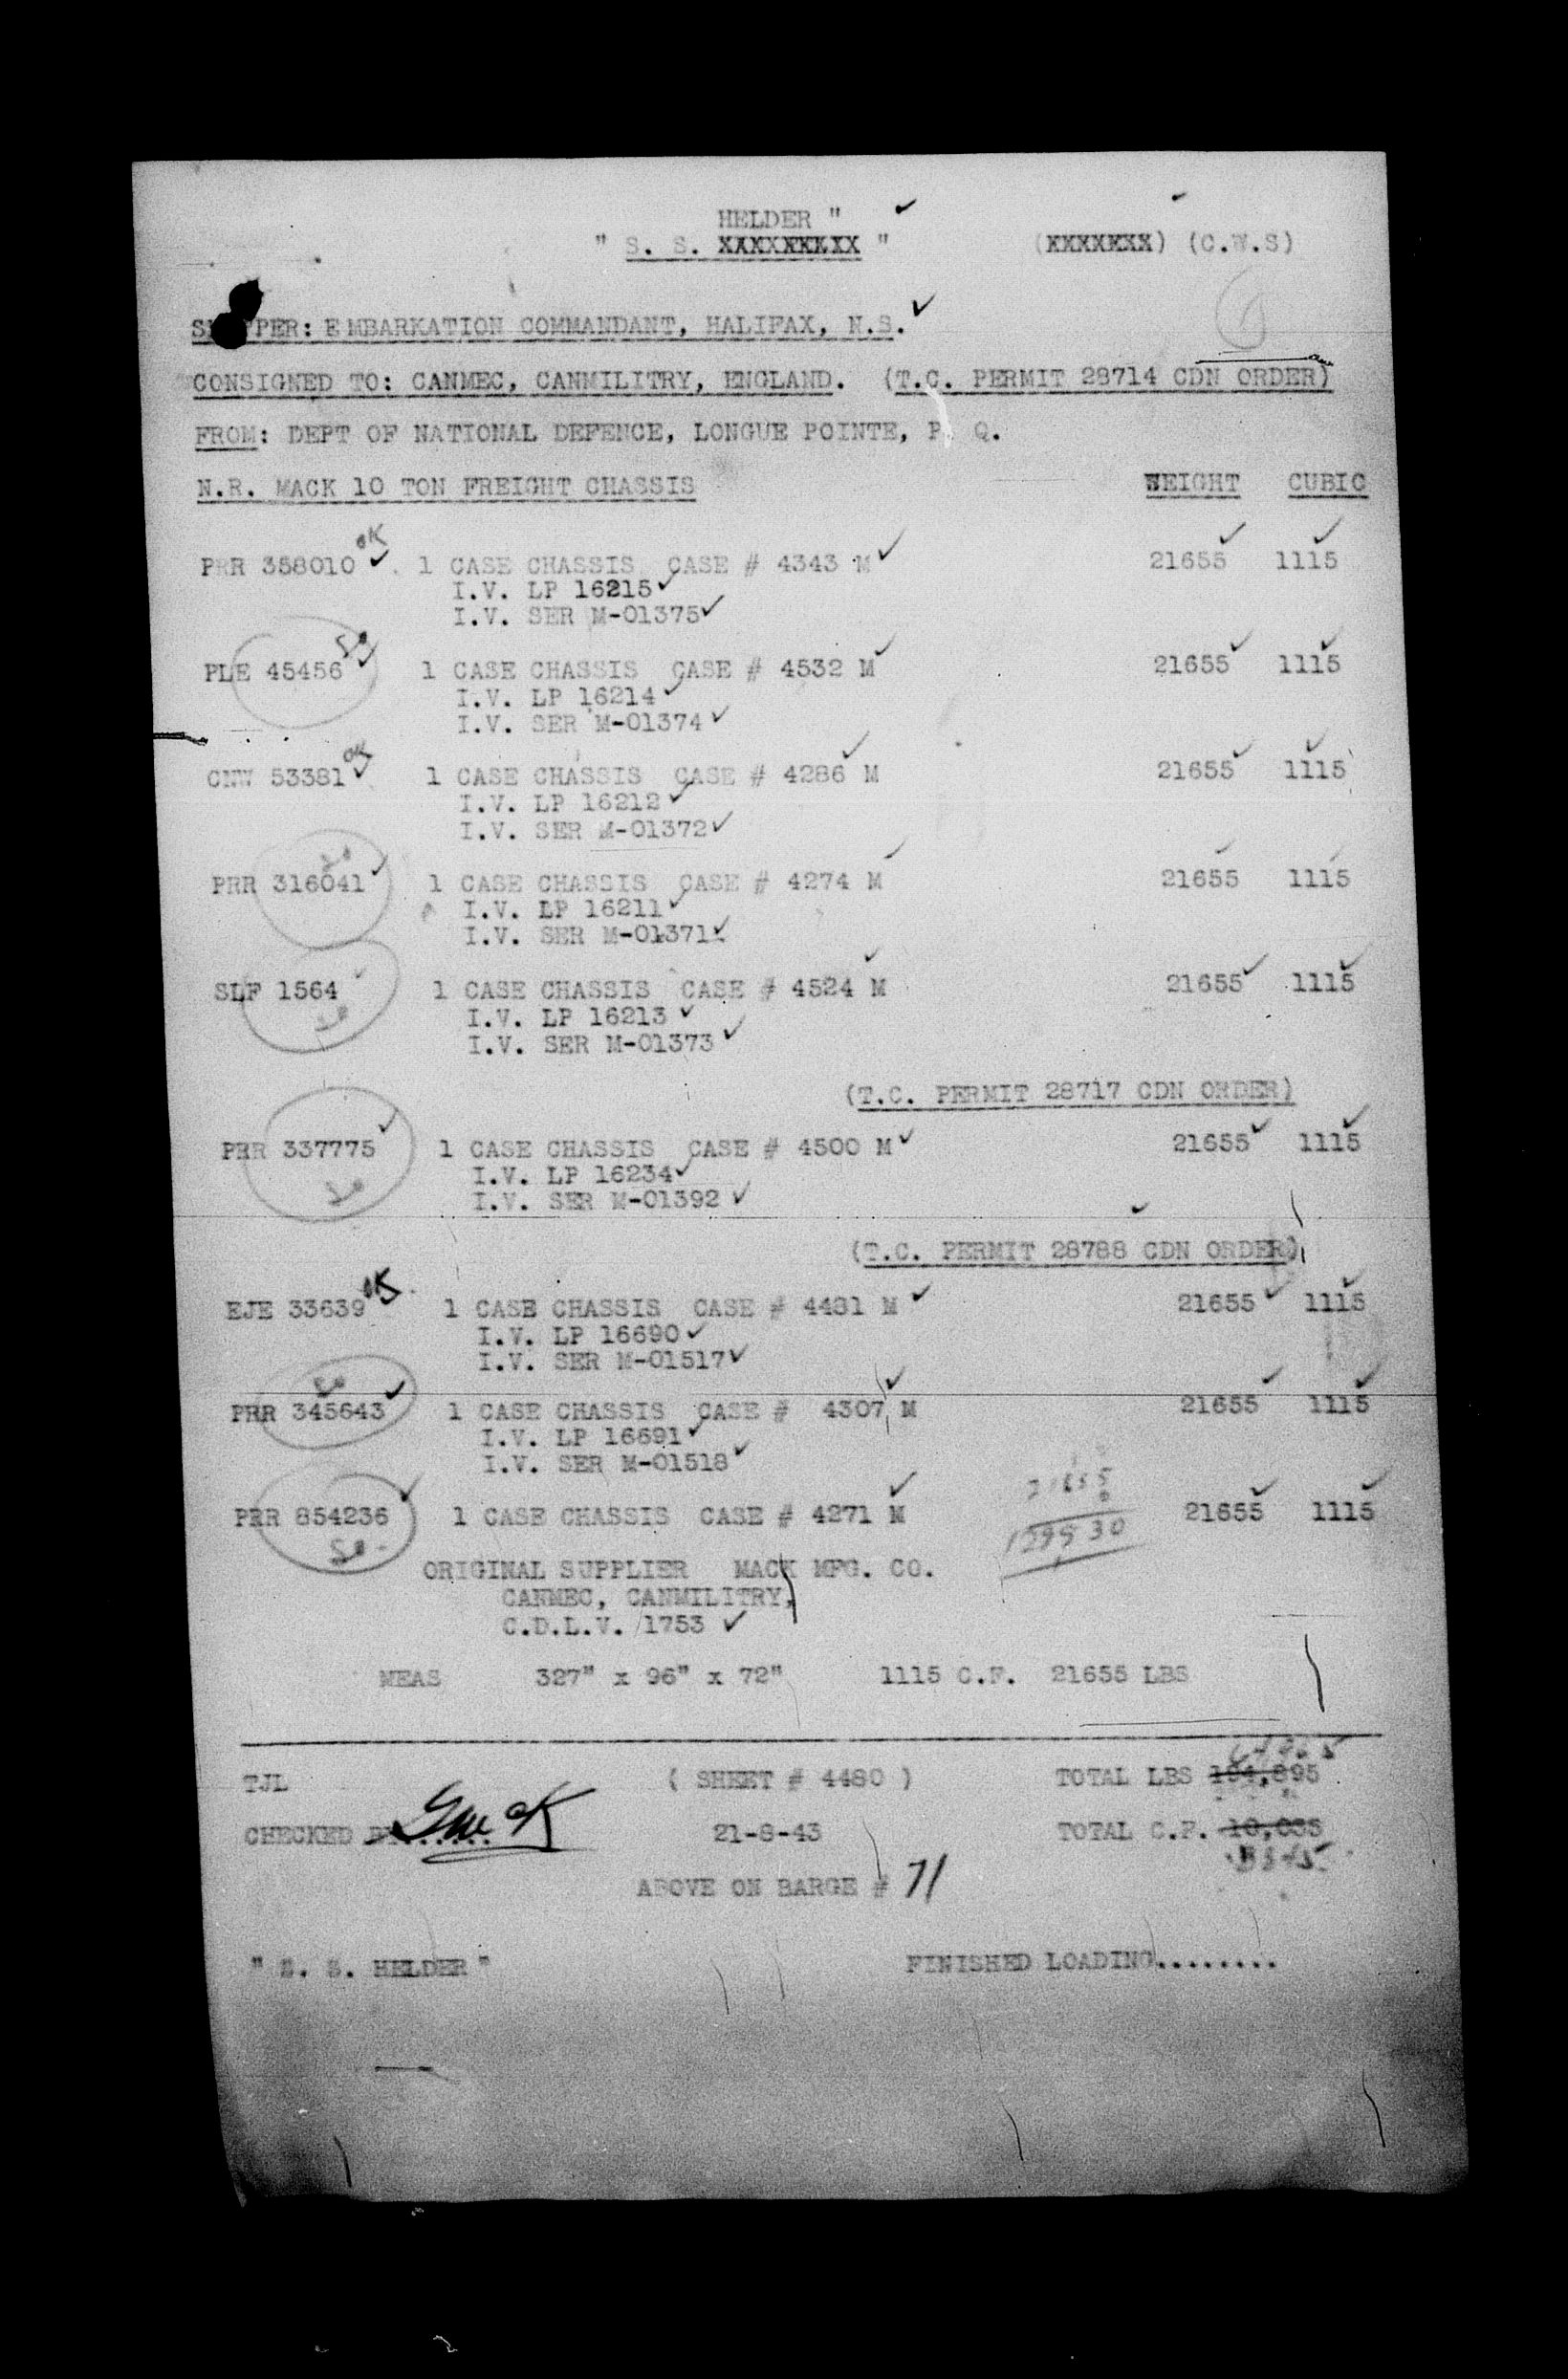 HELDER "
" S. S. XXXXXXXXX " (XXXXXXX) (C.W.S)
SHIPPER: EMBARKATION COMMANDANT, HALIFAX, N.S.
CONSIGNED TO: CANMEC, CANMILITRY, ENGLAND. (T.C. PERMIT 28714 CDN ORDER)
FROM: DEPT OF NATIONAL DEFENCE, LONGUE POINTE, P. Q.
N.R. MACK 10 TON FREIGHT CHASSIS WEIGHT CUBIC
OK
PRR 358010 1 CASE CHASSIS CASE # 4343 M 21655 1115
I.V. LP 16215
I.V. SER M-01375
PLE 45456 1 CASE CHASSIS CASE # 4532 M 21655 1115
I.V. LP 16214
I.V. SER M-01374
OK
CNW 53381 1 CASE CHASSIS CASE # 4286 M 21655 1115
I.V. LP 16212
I.V. SER M-01372
PRR 316041 1 CASE CHASSIS CASE # 4274 M 21655 1115
I.V. LP 16211
I.V. SER M-01371
SLF 1564 1 CASE CHASSIS CASE # 4524 M 21655 1115
I.V. LP 16213
I.V. SER M-01373
(T.C. PERMIT 28717 CDN ORDER)
PRR 337775 1 CASE CHASSIS CASE # 4500 M 21655 1115
I.V. LP 16234
I.V. SER M-01392
(T.C. PERMIT 28788 CDN ORDER)
OK
EJE 33639 1 CASE CHASSIS CASE # 4481 M 21655 1115
I.V. LP 16690
I.V. SER M-01517
PRR 345643 1 CASE CHASSIS CASE # 4307 M 21655 1115
I.V. LP 16691
I.V. SER M-01518
21655
PRR 854236 1 CASE CHASSIS CASE # 4271 M 21655 1115
129930
ORIGINAL SUPPLIER MACK MFG. CO.
CANMEC, CANMILITRY,
C.D.L.V. 1753
MEAS 327" x 96" x 72" 1115 C.F. 21655 LBS
64965
TJL ( SHEET # 4480 ) TOTAL LBS 194,895
CHECKED BY....... 21-8-43 TOTAL C.F. 10,035
3345
ABOVE ON BARGE # 71
" S. S. HELDER " FINISHED LOADING........